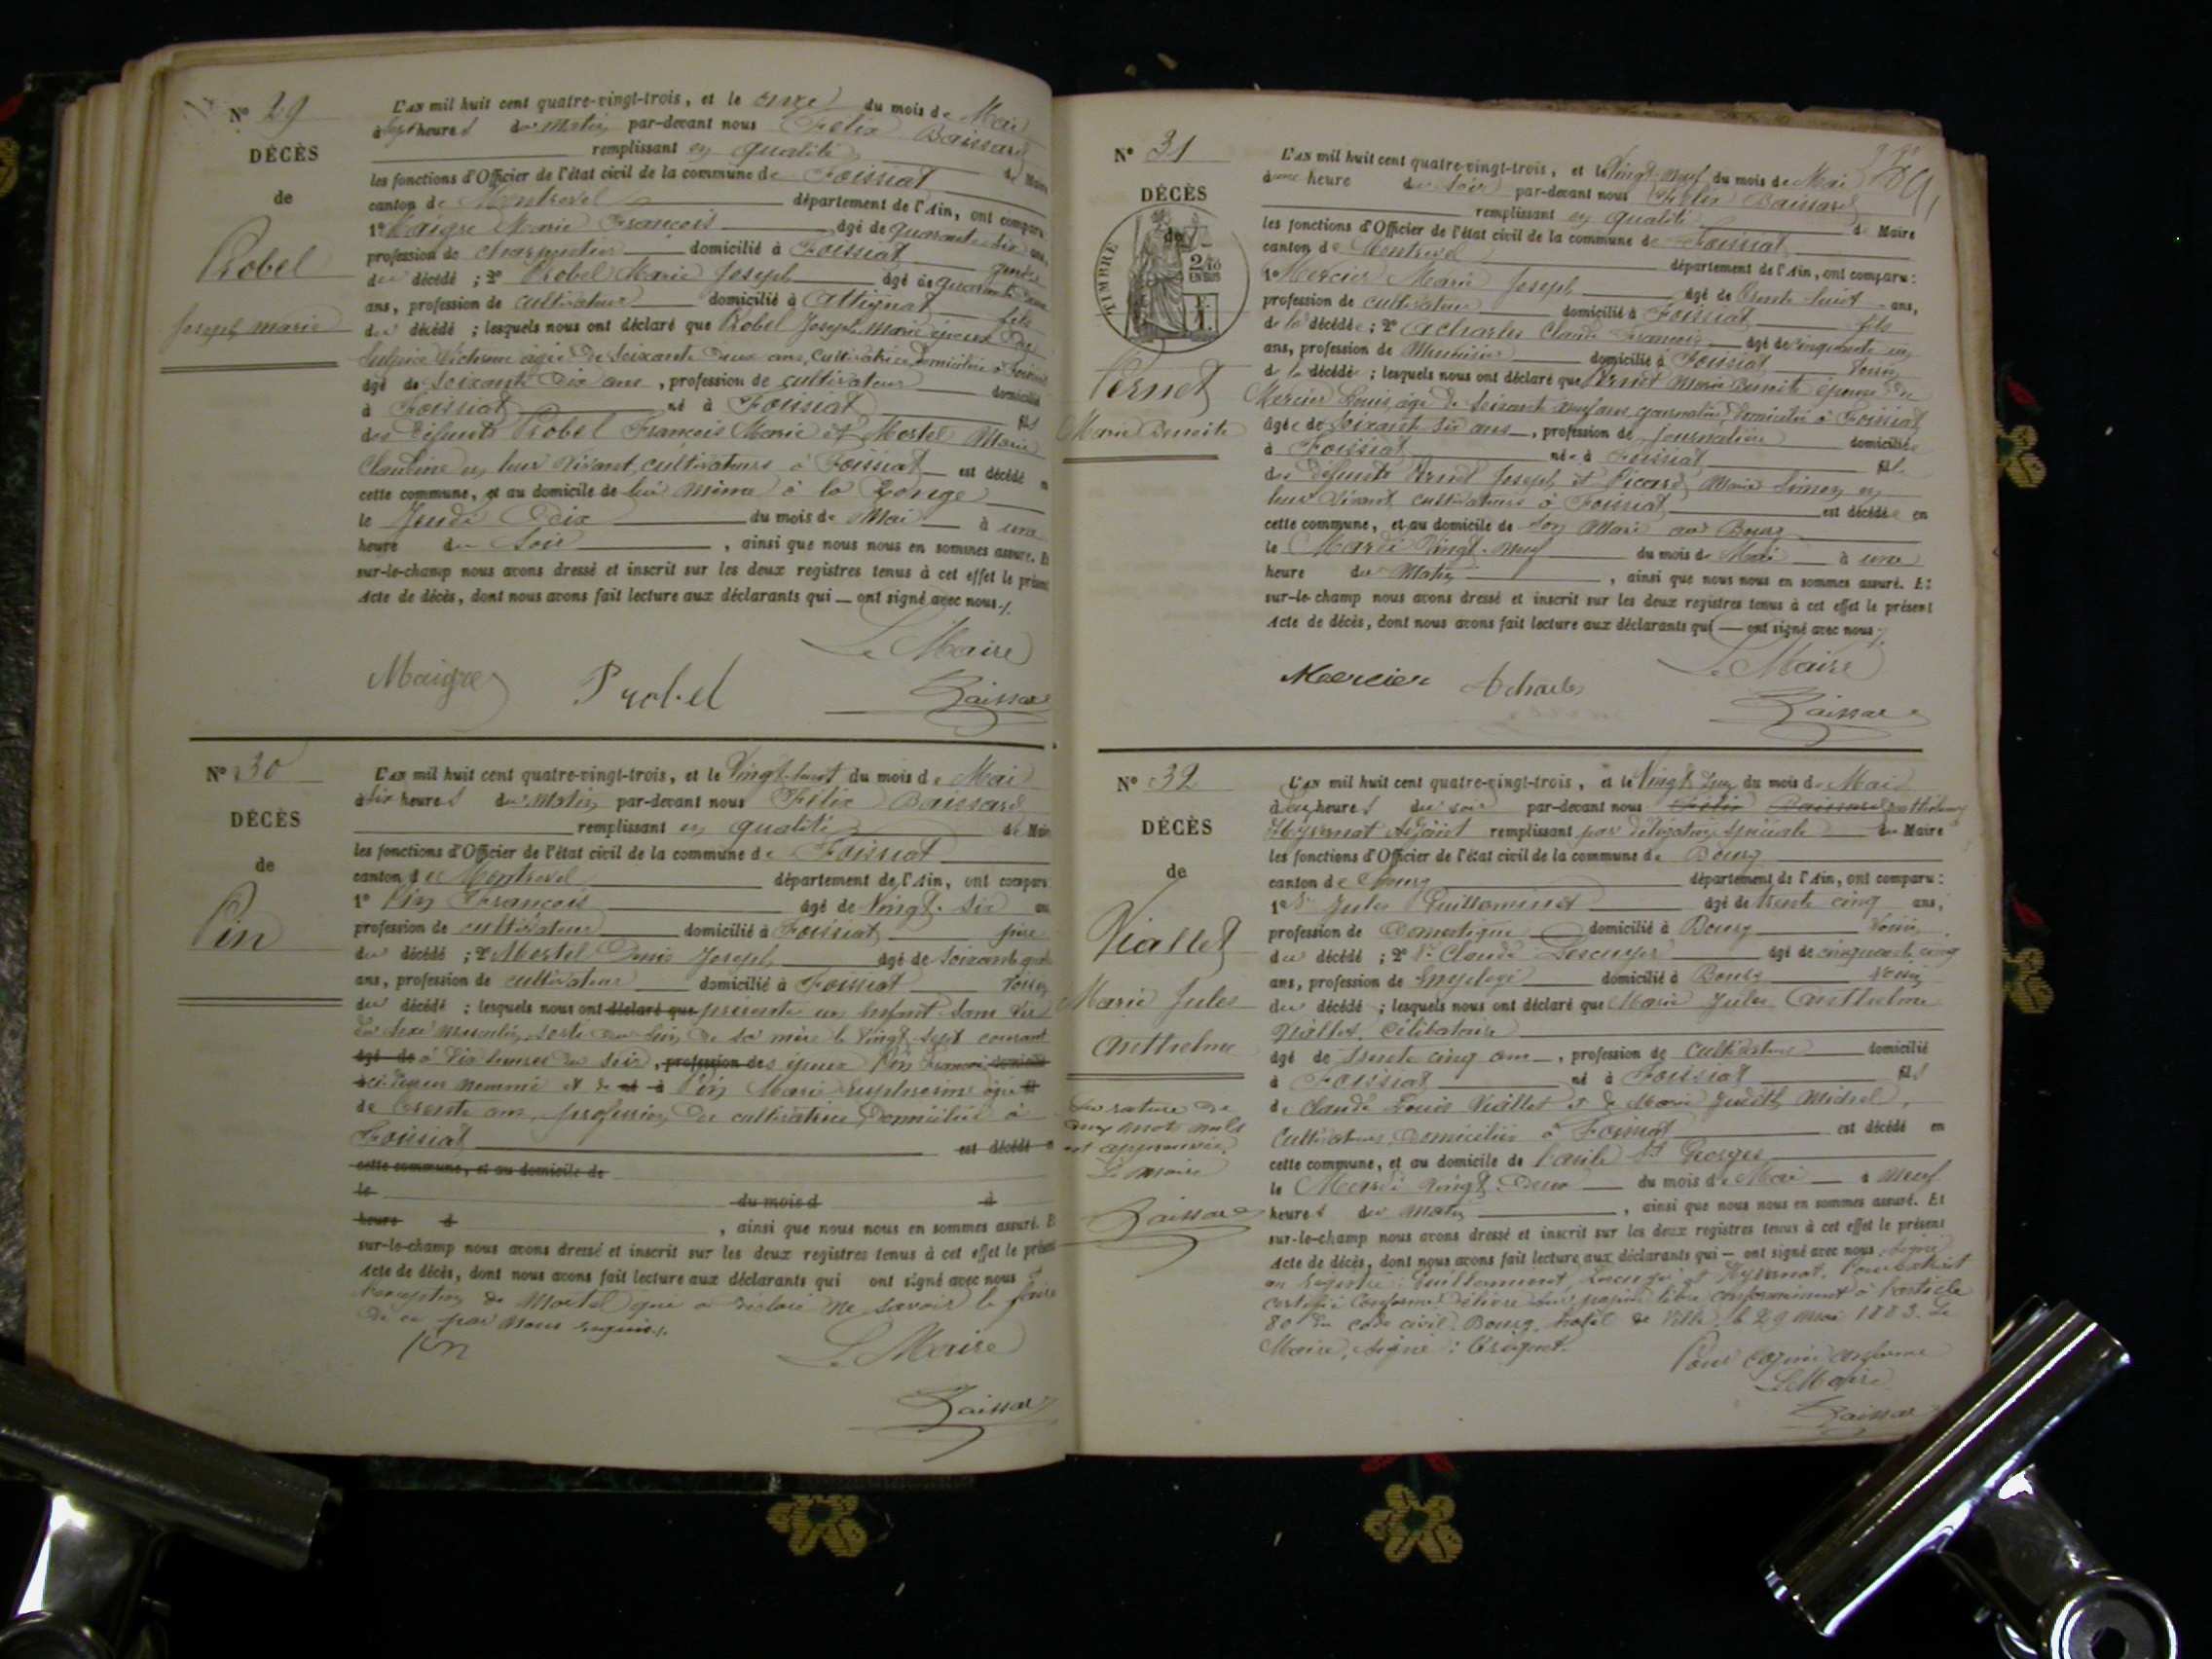 N° 29
DÉCÈS
de
Probel
Joseph marie
L'an mil huit cent quatre-vingt-trois, et le onze du mois de Mai
à Sept heures du Matin par-devant nous Félix Baissard
remplissant en qualité de Maire
les fonctions d'Officier de l'état civil de la commune de Foissiat
canton de Montrevel département de l'Ain, ont comparu
1° Maigre Marie François âgé de quarante six ans,
profession de charpentier domicilié à Foissiat gendre
du décédé ; 2° Probel Marie Joseph âgé de quarante
ans, profession de cultivateur domicilié à Attignat fils
du décédé ; lesquels nous ont déclaré que Probel Joseph Marie époux de
âgée de soixante deux ans, cultivatrice domiciliée à Foissiat
âgé de soixante dix ans, profession de cultivateur domicilié
à Foissiat né à Foissiat fils
des défunts Probel François Marie et Mortel Marie
Claudine en leur vivant cultivateurs à Foissiat est décédé en
cette commune, et au domicile de lui même à la
le Jeudi Dix du mois de Mai à une
heure du Soir, ainsi que nous nous en sommes assuré. Et
sur-le-champ nous avons dressé et inscrit sur les deux registres tenus à cet effet le présent
Acte de décès, dont nous avons fait lecture aux déclarants qui ont signé avec nous.
Le Maire
Maigre Probel Baissard
N° 30
DÉCÈS
de
Pin
L'an mil huit cent quatre-vingt-trois, et le Vingt-huit du mois de Mai
à six heures du Matin par-devant nous Félix Baissard
remplissant en qualité de Maire
les fonctions d'Officier de l'état civil de la commune de Foissiat
canton de Montrevel département de l'Ain, ont comparu
1° Pin François âgé de Vingt-six ans
profession de cultivateur domicilié à Foissiat père
du décédé ; 2° Mortel Denis Joseph âgé de Soixante
ans, profession de cultivateur domicilié à Foissiat voisin
du décédé ; lesquels nous ont déclaré que présenté un Enfant sans vie
du sexe masculin, sorti du sein de sa mère le vingt-sept courant
âgé de à dix heures du soir, profession de des époux Pin François domicilié
ci-dessus nommé et de né à Pin Marie Euphrosine âgée
de trente ans, profession de cultivatrice, domiciliée à
Foissiat est décédé en
cette commune, et au domicile de
le du mois d à
heure d , ainsi que nous nous en sommes assuré. Et
sur-le-champ nous avons dressé et inscrit sur les deux registres tenus à cet effet le présent
Acte de décès, dont nous avons fait lecture aux déclarants qui ont signé avec nous à
l'exception de Mortel qui a déclaré ne savoir le faire
de ce par Nous requis.
Pin Le Maire
Baissard
N° 31
DÉCÈS
de
TIMBRE
Vernet
Marie Benoite
L'an mil huit cent quatre-vingt-trois, et le Vingt neuf du mois de Mai
à une heure du Soir par-devant nous Félix Baissard
remplissant en qualité de Maire
les fonctions d'Officier de l'état civil de la commune de Foissiat
canton de Montrevel département de l'Ain, ont comparu :
1° Mercier Marie Joseph âgé de trente huit ans,
profession de cultivateur domicilié à Foissiat fils
de la décédée ; 2° Acharles Claude François âgé de cinquante un
ans, profession de Menuisier domicilié à Foissiat voisin
de la décédée ; lesquels nous ont déclaré que Vernet Marie Benoite épouse de
Mercier Louis, âgé de soixante neuf ans, journalier, domicilié à Foissiat
âgée de soixante six ans, profession de journalière domiciliée
à Foissiat née à Foissiat fille
des défunts Vernet Joseph et Picard Marie en
leur vivant cultivateurs à Foissiat est décédée en
cette commune, et au domicile de son Mari au Bourg
le Mardi Vingt-neuf du mois de Mai à une
heure du Matin, ainsi que nous nous en sommes assuré. Et
sur-le-champ nous avons dressé et inscrit sur les deux registres tenus à cet effet le présent
Acte de décès, dont nous avons fait lecture aux déclarants qui ont signé avec nous
Le Maire
Mercier Acharles Baissard
N° 32
DÉCÈS
de
Viallet
Marie Jules
Anthelme
La rature de
deux mots nuls
est approuvée.
Le Maire
Baissard
L'an mil huit cent quatre-vingt-trois, et le Vingt Deux du mois de Mai
à heures du soir par-devant nous Félix Baissard Barthélemy
Heyrmat Adjoint remplissant par délégation spéciale du Maire
les fonctions d'Officier de l'état civil de la commune de Bourg
canton de Bourg département de l'Ain, ont comparu :
1° Jules Guillominet âgé de trente cinq ans,
profession de Domestique domicilié à Bourg voisin
du décédé ; 2° Claude Lescuyer âgé de cinquante cinq
ans, profession de Employé domicilié à Bourg voisin
du décédé ; lesquels nous ont déclaré que Marie Jules Anthelme
Viallet, célibataire
âgé de trente cinq ans, profession de Cultivateur domicilié
à Foissiat né à Foissiat fils
de Claude Louis Viallet et de Marie Judith Michel,
Cultivateurs, domiciliés à Foissiat est décédé en
cette commune, et au domicile de l'asile St Georges
le Mardi Vingt-Deux du mois de Mai à neuf
heures du Matin, ainsi que nous nous en sommes assuré. Et
sur-le-champ nous avons dressé et inscrit sur les deux registres tenus à cet effet le présent
Acte de décès, dont nous avons fait lecture aux déclarants qui ont signé avec nous. Signé
au registre : Guillominet, Lescuyer et Heyrmat. Pour extrait
certifié conforme délivré sur papier libre conformément à l'article
80 du code civil. Bourg, hôtel de Ville, le 29 Mai 1883. Le
Maire, signé :
Pour copie conforme
Le Maire
Baissard